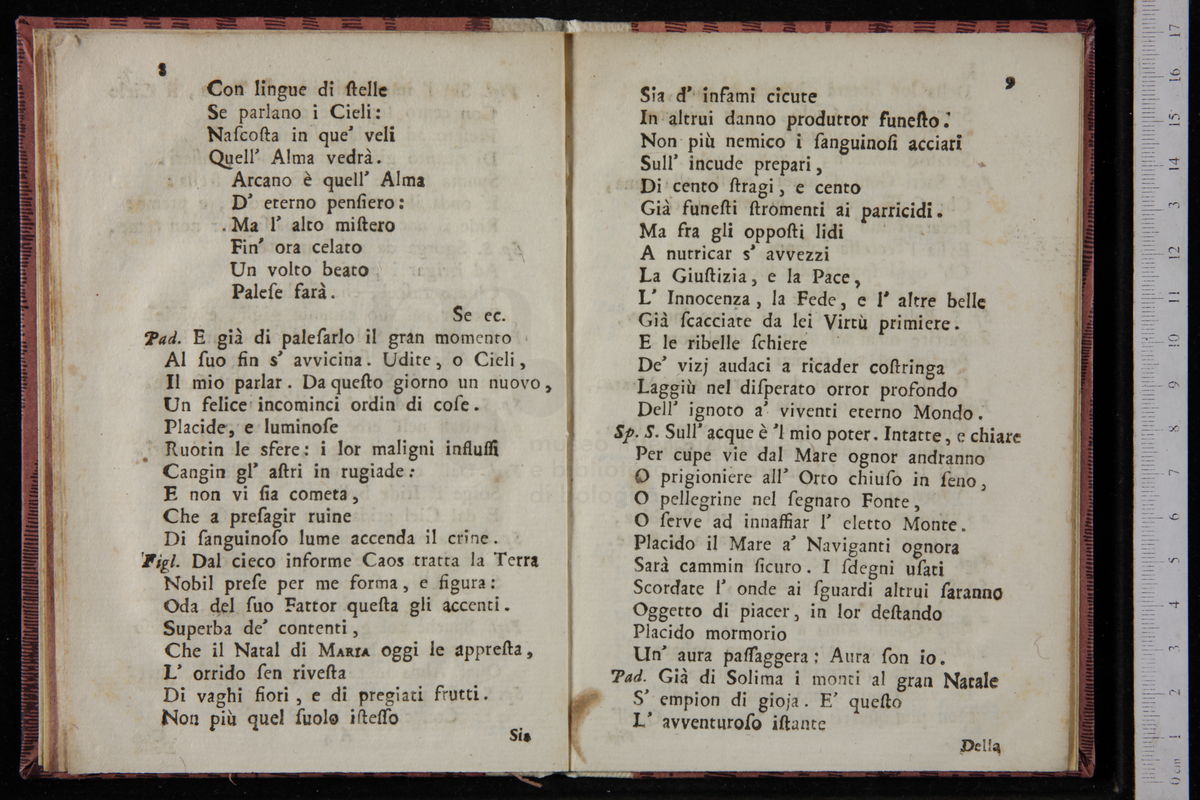 8
Con lingue di ſtelle
Se parlano i Cieli:
Naſcoſta in que' veli
Quell' Alma vedrà.
Arcano è quell' Alma
D' eterno penſiero:
Ma l' alto miſtero
Fin' ora celato
Un volto beato
Paleſe farà.
Se ec.
Pad. E già di paleſarlo il gran momento
Al ſuo fin s' avvicina. Udite, o Cieli,
Il mio parlar. Da queſto giorno un nuovo,
Un felice incominci ordin di coſe.
Placide, e luminoſe
Ruotin le sfere: i lor maligni influſſi
Cangin gl' aſtri in rugiade:
E non vi ſia cometa,
Che a preſagir ruine
Di ſanguinoſo lume accenda il crine.
Figl. Dal cieco informe Caos tratta la Terra
Nobil preſe per me forma, e figura:
Oda del ſuo Fattor queſta gli accenti.
Superba de' contenti,
Che il Natal di MARIA oggi le appreſta,
L' orrido ſen riveſta
Di vaghi fiori, e di pregiati frutti.
Non più quel ſuolo iſteſſo
Sia
9
Sia d' infami cicute
In altrui danno produttor funeſto.
Non più nemico i ſanguinoſi acciari
Sull' incude prepari,
Di cento ſtragi, e cento
Già funeſti ſtromenti ai parricidi.
Ma fra gli oppoſti lidi
A nutricar s' avvezzi
La Giuſtizia, e la Pace,
L' Innocenza, la Fede, e l' altre belle
Già ſcacciate da lei Virtù primiere.
E le ribelle ſchiere
De' vizj audaci a ricader coſtringa
Laggiù nel diſperato orror profondo
Dell' ignoto a' viventi eterno Mondo.
Sp. S. Sull' acque è 'l mio poter. Intatte, e chiare
Per cupe vie dal Mare ognor andranno
O prigioniere all' Orto chiuſo in ſeno,
O pellegrine nel ſegnato Fonte,
O ſerve ad innaffiar l' eletto Monte.
Placido il Mare a' Naviganti ognora
Sarà cammin ſicuro. I ſdegni uſati
Scordate l' onde ai ſguardi altrui ſaranno
Oggetto di piacer, in lor deſtando
Placido mormorio
Un' aura paſſaggera: Aura ſon io.
Pad. Già di Solima i monti al gran Natale
S' empion di gioja. E' queſto
L' avventuroſo iſtante
Della